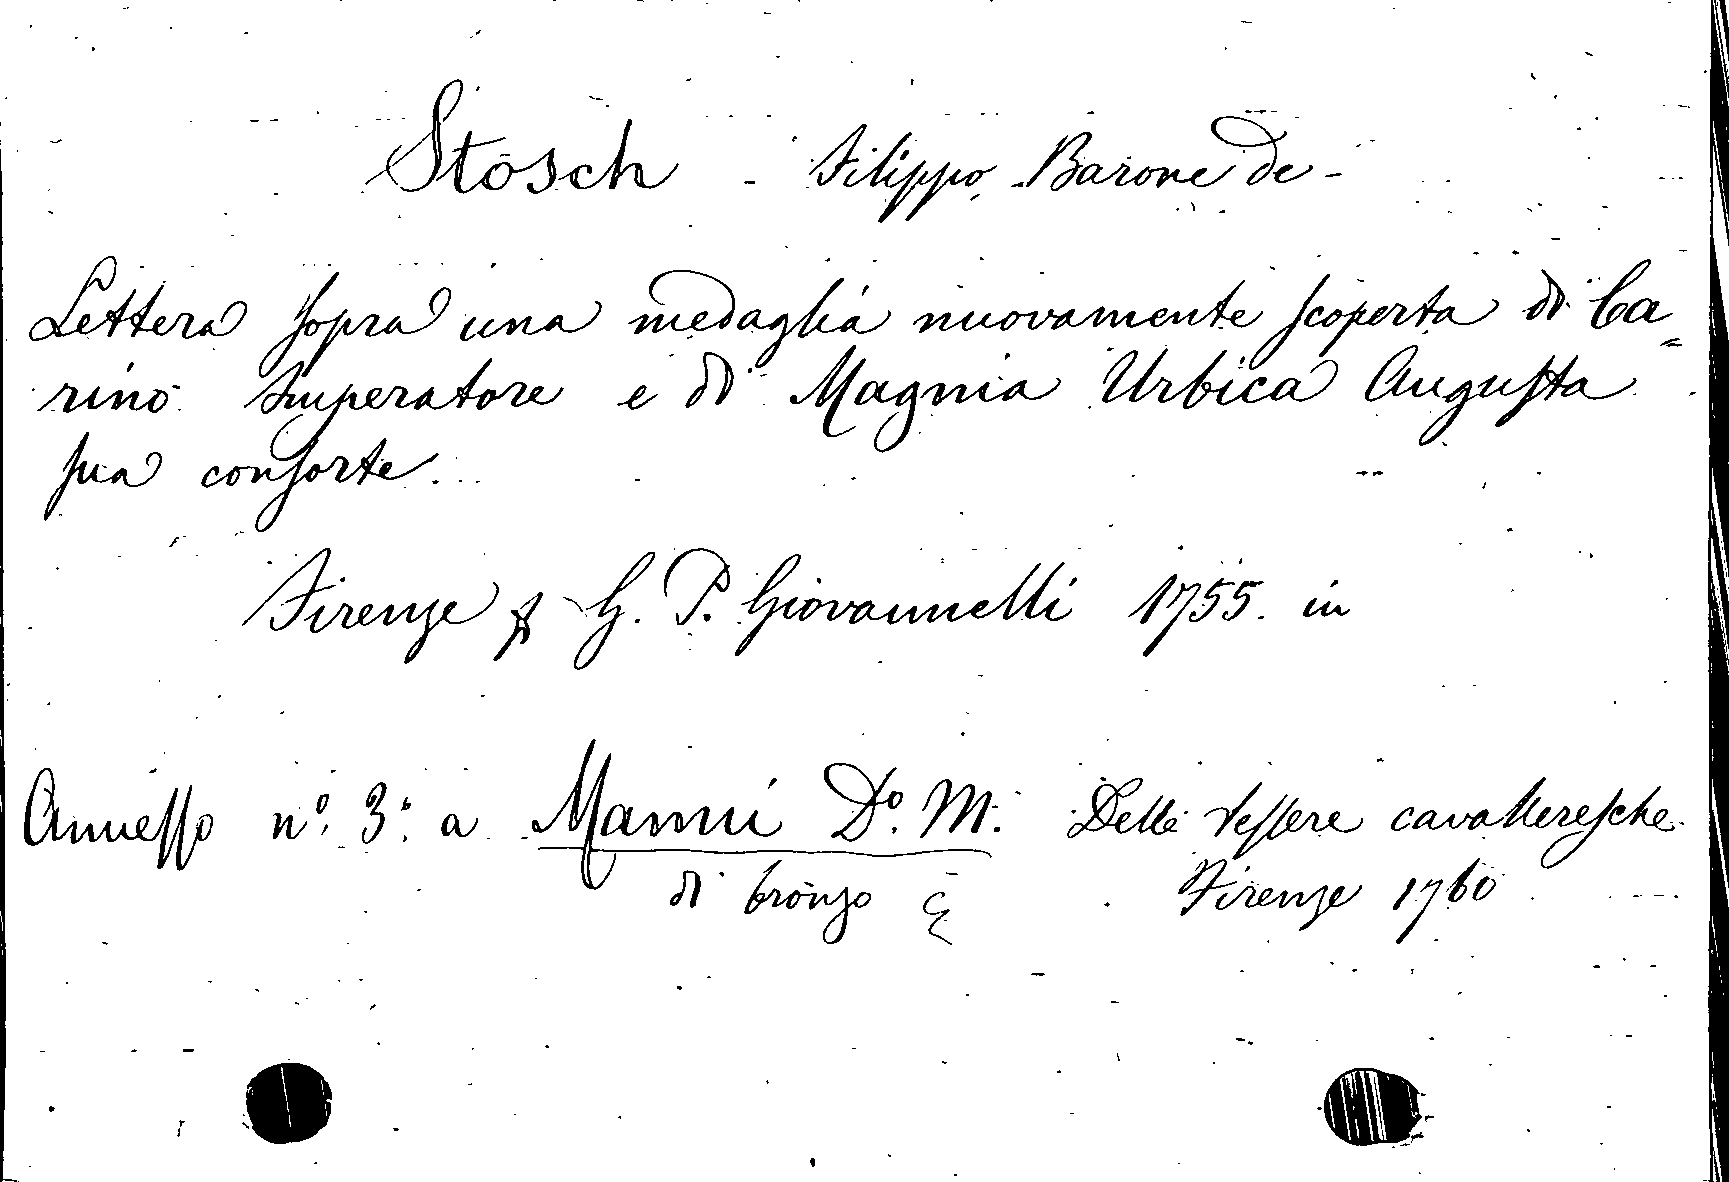 Stosch - Filippo Barone de -
Lettera sopra una medaglia nuovamente scoperta di Ca=
rino Imperatore e di Magnia Urbica Augusta
sua consorte.
Firenze G. P. Giovannelli 1755. in
Annesso n.° 3.° a Manni D.° M. Delle tessere cavalleresche
di bronzo Firenze 1760